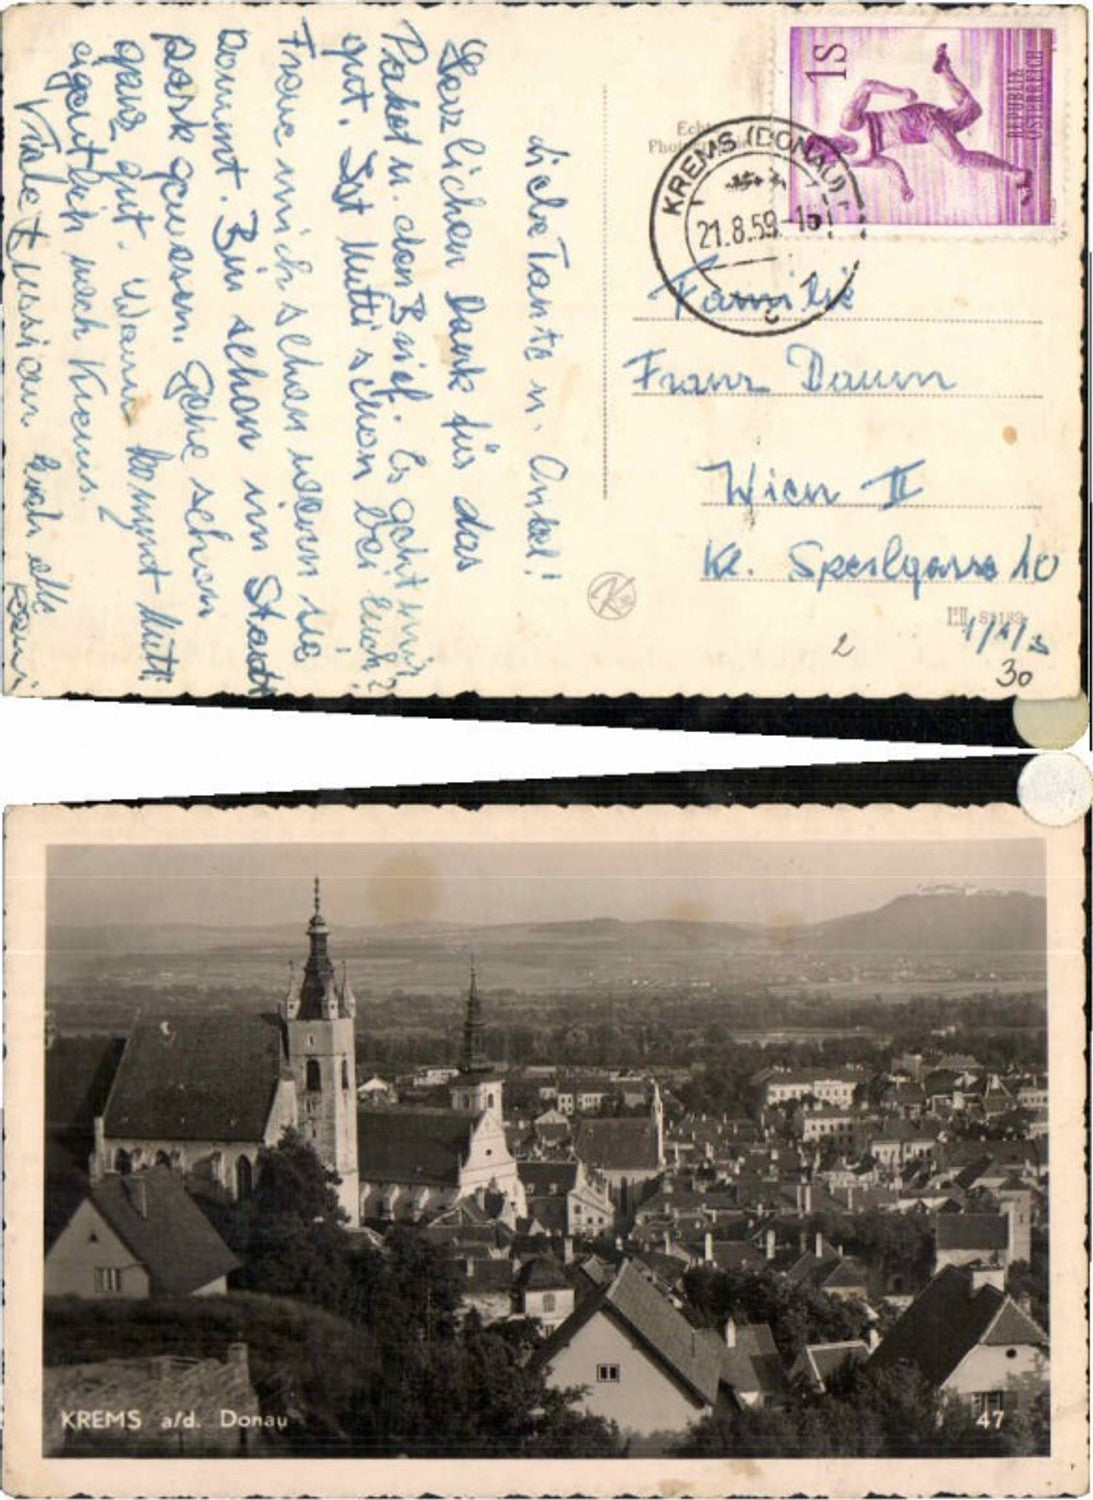 Liebe Tante u. Onkel!
Herzlichen Dank für das
Paket u. den Brief. Es geht mir
gut. Ist Mutti schon bei Euch?
Freue mich schon wenn sie
kommt. Bin schon im Stadt
park gewesen. Gehe schon
ganz gut. Wann kommt Mutti
eigentlich nach Krems?
Viele Bussi an Euch alle
Echte
KREMS (DONAU)
21.8.59
1S
REPUBLIK
ÖSTERREICH
Familie
Franz
Wien II
Kl. Sperlgasse 10
K
2
30
KREMS a/d. Donau
47